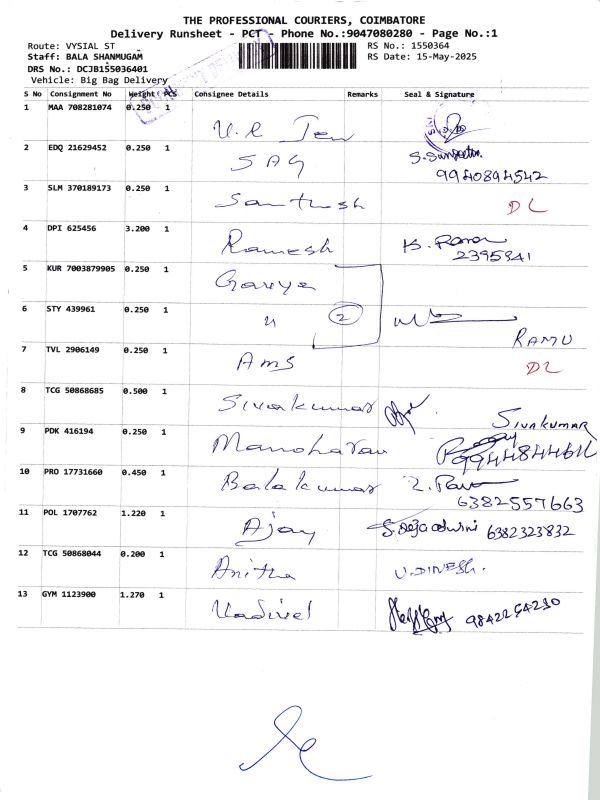 THE PROFESSIONAL COURIERS, COIMBATORE
Delivery Runsheet - PCT - Phone No.:9047080280 - Page No.:1
Route: VYSIAL ST
RS No.: 1550364
Staff: BALA SHANMUGAM
RS Date: 15-May-2025
DRS No.: DCJB155036401
Vehicle: Big Bag Delivery
S No Consignment No Weight PCS Consignee Details Remarks Seal & Signature
1 MAA 708281074 0.250 1
2 EDQ 21629452 0.250 1 SAG
9940894542
3 SLM 370189173 0.250 1 Santhosh DL
4 DPI 625456 3.200 1 Ramesh K.
2395941
5 KUR 7003879905 0.250 1
6 STY 439961 0.250 1 " 2
RAMU
7 TVL 2906149 0.250 1 AMS DL
8 TCG 50868685 0.500 1 Sivakumar
SIVAKUMAR
9 PDK 416194 0.250 1 Manoharan
10 PRO 17731660 0.450 1 Balakumar
6382557663
11 POL 1707762 1.220 1 Ajay 6382323832
12 TCG 50868044 0.200 1 Anitha U.DINESH.
13 GYM 1123900 1.270 1 Vadivel 9842254290